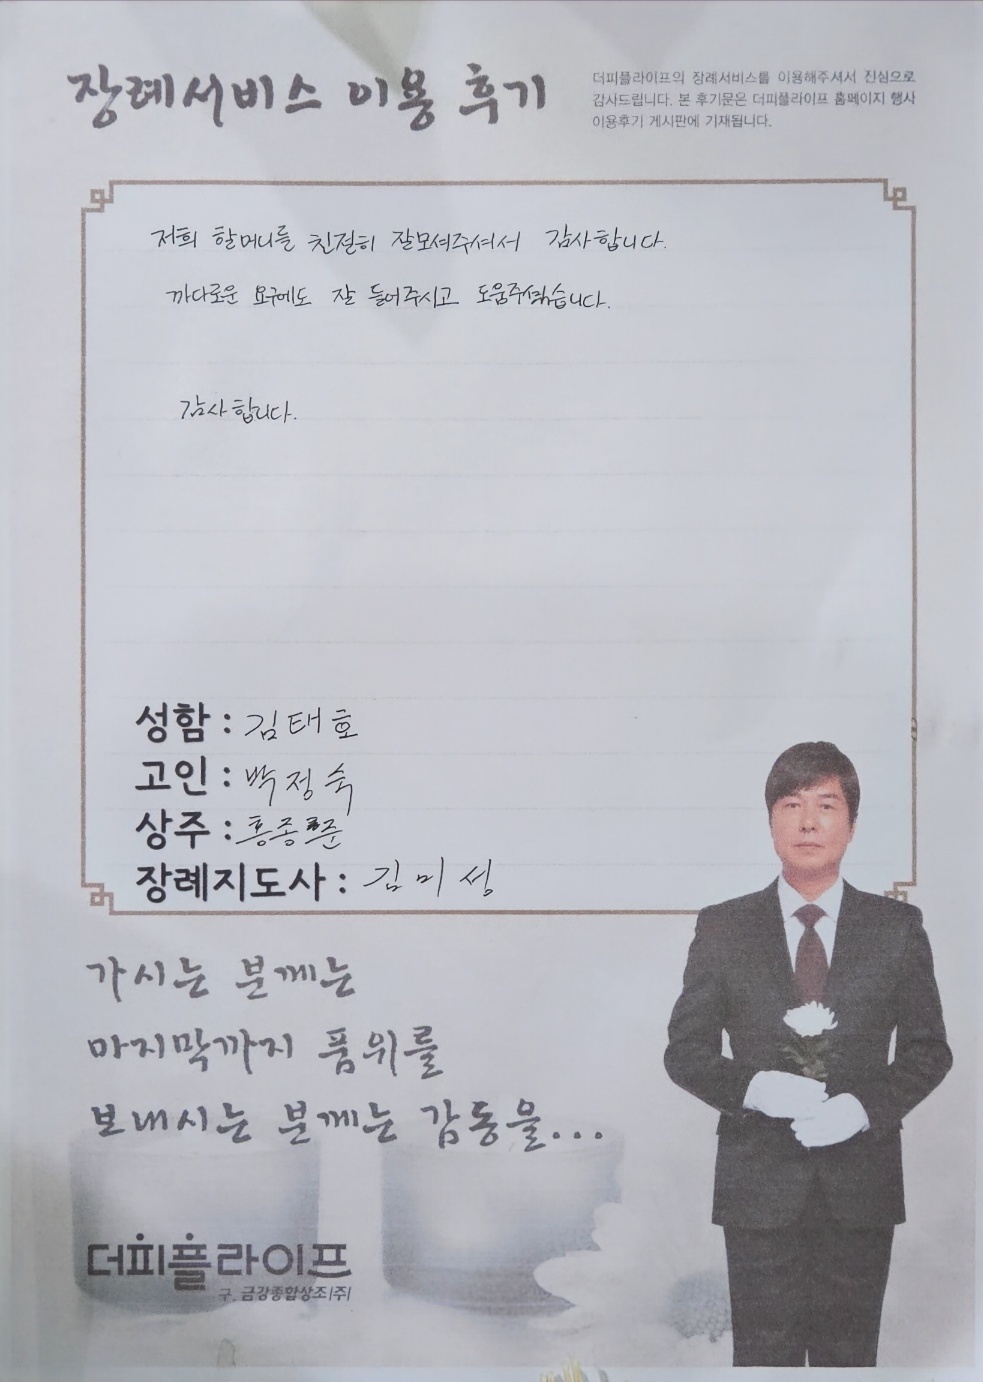 장례서비스 이용 후기
더피플라이프의 장례서비스를 이용해주셔서 진심으로
감사드립니다. 본 후기문은 더피플라이프 홈페이지 행사
이용후기 게시판에 기재됩니다.
저희 할머니를 친절히 잘모셔주셔서 감사합니다.
까다로운 요구에도 잘 들어주시고 도움주셨습니다.
감사합니다.
성함 : 김태호
고인 : 박정숙
상주 : 홍종준
장례지도사 : 김미성
가시는 분께는
마지막까지 품위를
보내시는 분께는 감동을...
더피플라이프
구. 금강종합상조(주)